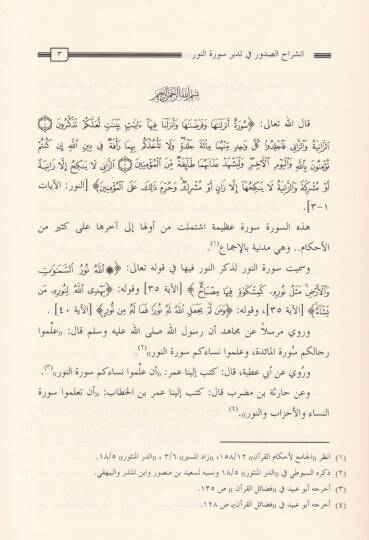 انشراح الصدور في تدبر سورة النور
٣
بسم الله الرحمن الرحيم
قال الله تعالى: ﴿سُورَةٌ أَنزَلْنَاهَا وَفَرَضْنَاهَا وَأَنزَلْنَا فِيهَا آيَاتٍ بَيِّنَاتٍ لَّعَلَّكُمْ تَذَكَّرُونَ ۝
الزَّانِيَةُ وَالزَّانِي فَاجْلِدُوا كُلَّ وَاحِدٍ مِّنْهُمَا مِائَةَ جَلْدَةٍ وَلَا تَأْخُذْكُم بِهِمَا رَأْفَةٌ فِي دِينِ اللَّهِ إِن كُنتُمْ
تُؤْمِنُونَ بِاللَّهِ وَالْيَوْمِ الْآخِرِ وَلْيَشْهَدْ عَذَابَهُمَا طَائِفَةٌ مِّنَ الْمُؤْمِنِينَ ۝ الزَّانِي لَا يَنكِحُ إِلَّا زَانِيَةً
أَوْ مُشْرِكَةً وَالزَّانِيَةُ لَا يَنكِحُهَا إِلَّا زَانٍ أَوْ مُشْرِكٌ وَحُرِّمَ ذَلِكَ عَلَى الْمُؤْمِنِينَ﴾ [النور: الآيات
١-٣].
هذه السورة سورة عظيمة اشتملت من أولها إلى آخرها على كثير من
الأحكام.. وهي مدنية بالإجماع(١).
وسميت سورة النور لذكر النور فيها في قوله تعالى: ﴿۞ اللَّهُ نُورُ السَّمَاوَاتِ
وَالْأَرْضِ مَثَلُ نُورِهِ كَمِشْكَاةٍ فِيهَا مِصْبَاحٌ﴾ [الآية ٣٥] وقوله: ﴿يَهْدِي اللَّهُ لِنُورِهِ مَن
يَشَاءُ﴾ [الآية ٣٥]، وقوله: ﴿وَمَن لَّمْ يَجْعَلِ اللَّهُ لَهُ نُورًا فَمَا لَهُ مِن نُّورٍ﴾ [الآية ٤٠].
وروي مرسلاً عن مجاهد أن رسول الله صلى الله عليه وسلم قال: «علّموا
رجالكم سُورة المائدة، وعلموا نساءكم سورة النور»(٢).
ورُوي عن أبي عطية، قال: كتب إلينا عمر: «أن علّموا نساءكم سورة النور»(٣).
وعن حارثة بن مضرب قال: كتب إلينا عمر بن الخطاب: «أن تعلموا سورة
النساء والأحزاب والنور»(٤).
(١) انظر «الجامع لأحكام القرآن» ١٥٨/١٢، «زاد المسير» ٣/٦، «الدر المنثور» ١٨/٥.
(٢) ذكره السيوطي في «الدر المنثور» ١٨/٥ ونسبه لسعيد بن منصور وابن المنذر والبيهقي.
(٣) أخرجه أبو عبيد في «فضائل القرآن» ص ١٣٥.
(٤) أخرجه أبو عبيد في «فضائل القرآن» ص ١٢٨.